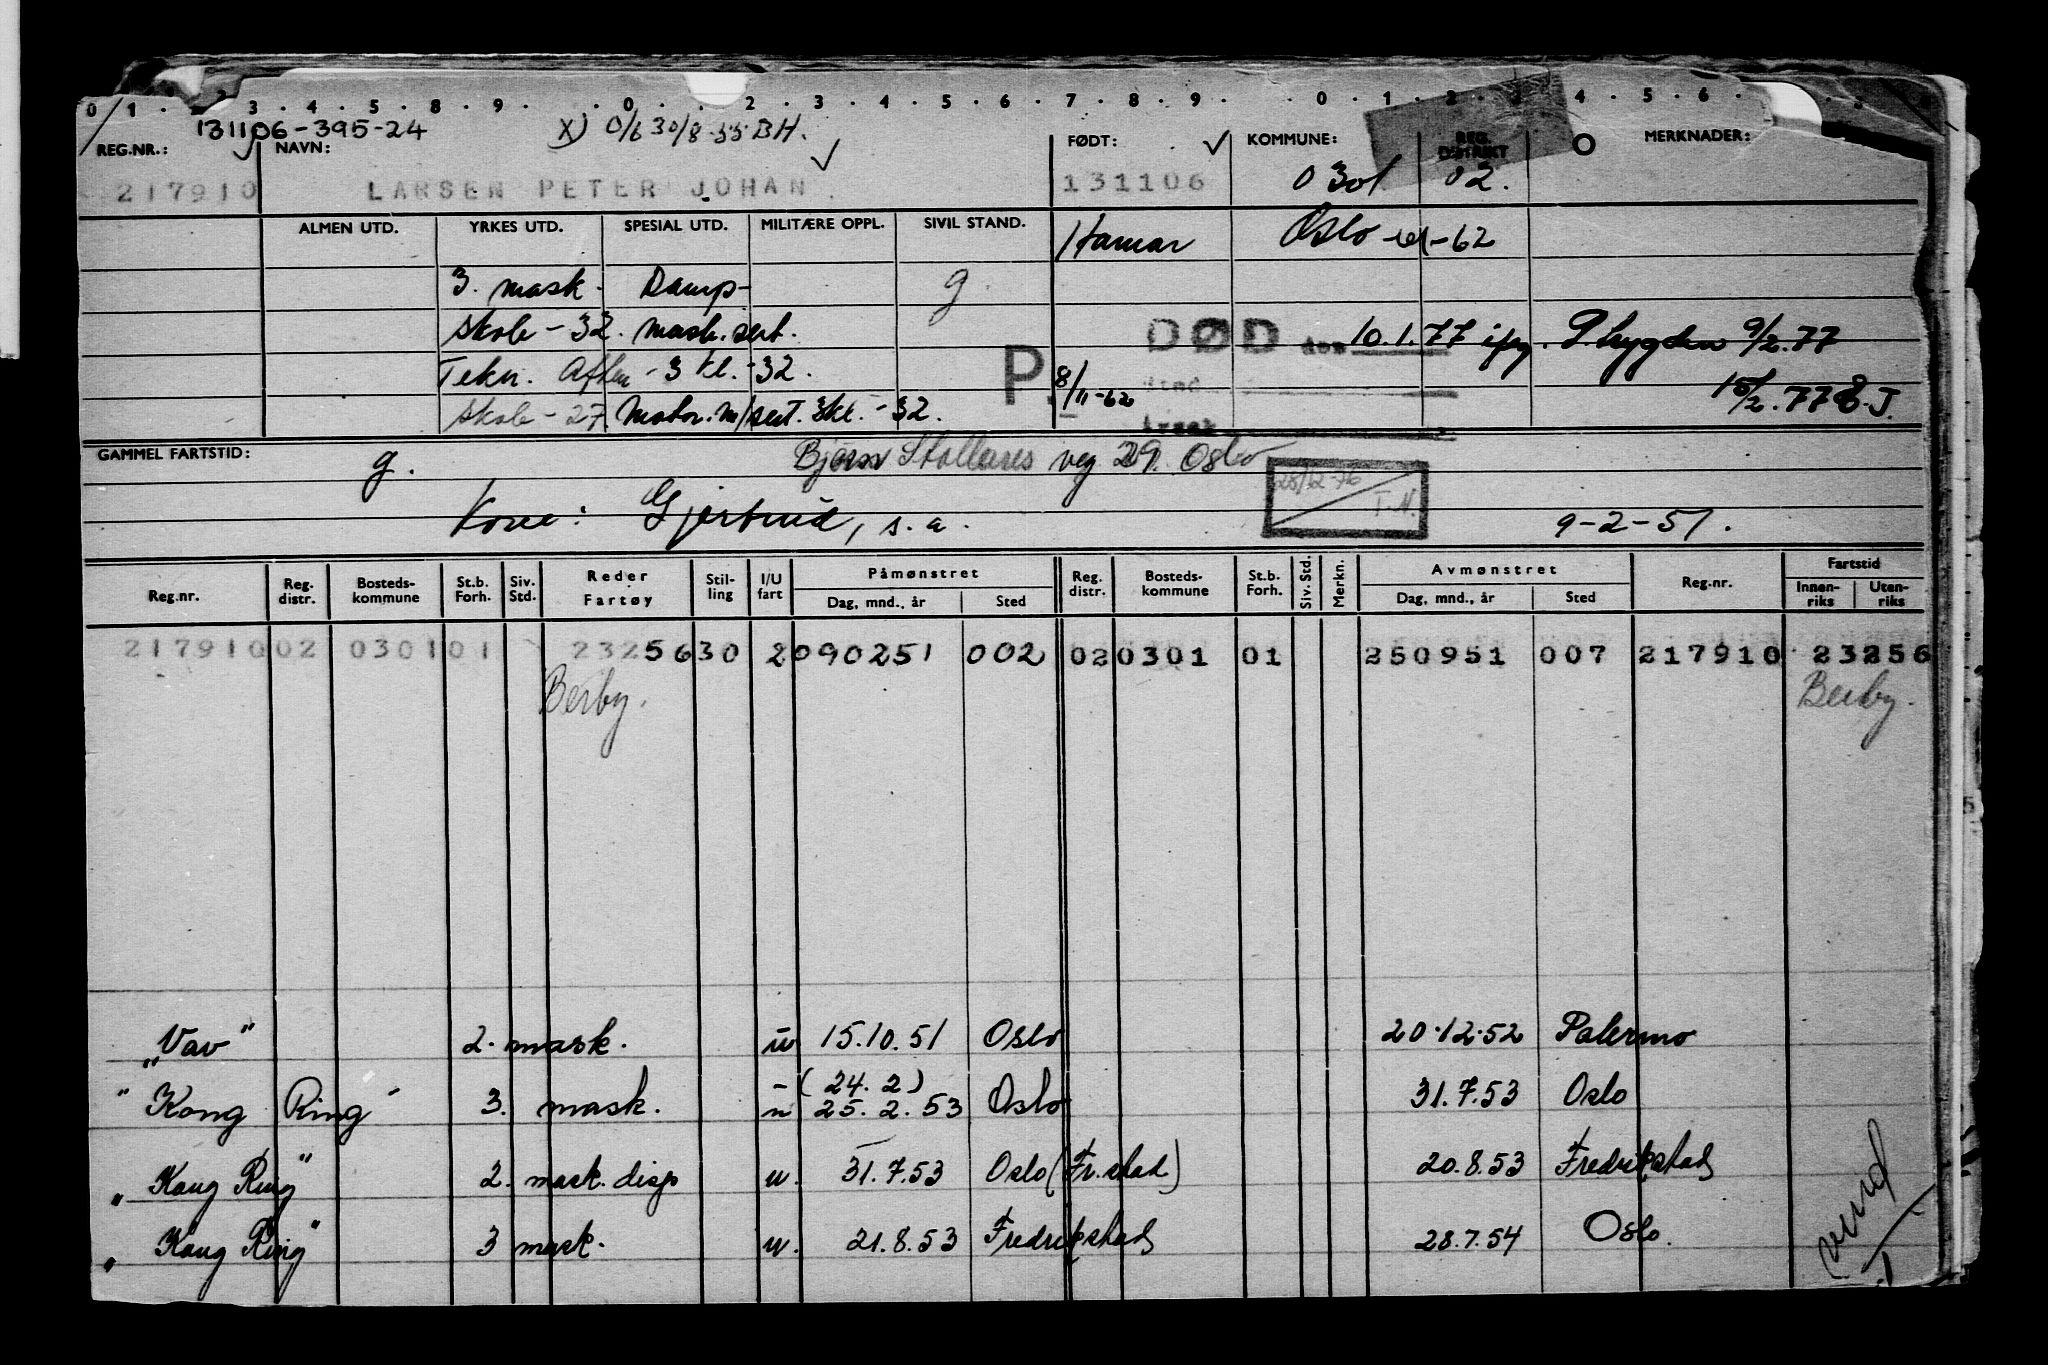 0 1 . 2 3 . 4 . 5 . 8 . 9 . . 0 . . 2 . 3 . 4 . 5 . 6 . 7 . 8 . 9 . 0 . 1 . 2 . 3 . 4 . 5 . 6 .
131106-395-24 X) 0/6 30/8-55 BH.
REG.NR.: NAVN: FØDT: KOMMUNE: REG. DISTRIKT MERKNADER:
217910 LARSEN PETER JOHAN 131106 0301 02.
ALMEN UTD. YRKES UTD. SPESIAL UTD. MILITÆRE OPPL. SIVIL STAND. Hamar Oslo -62
3. mask. Damp- g.
skole - 32. mask.sert. DØD den 10.1.77 ifg. P. trygden 9/2.77
Tekn. Aften - 3 kl. -32. P. 8/11-62 sted 15/2.77 J.
skole - 27. Motor.m/sert. 3kl. - 32. årsak
GAMMEL FARTSTID: g. Bjørn Stallares veg 29. Oslo
28/12-76 T.N.
Kone: Gjertrud, s.a. 9-2-51.
Reg.nr. Reg. distr. Bosteds- kommune St.b. Forh. Siv. Std. Reder Fartøy Stil- ling I/U fart Påmønstret Dag, mnd., år Sted Reg. distr. Bosteds- kommune St.b. Forh. Siv. Std. Merkn. Avmønstret Dag, mnd., år Sted Reg.nr. Fartstid Innen- riks Uten- riks
217910 02 0301 01 23256 30 2 090251 002 02 0301 01 250951 007 217910 23256
Berby. Berby.
„Vav" 2. mask. u 15.10.51 Oslo 20.12.52 Palermo
(24.2)
"Kong Ring" 3. mask. u 25.2.53 Oslo 31.7.53 Oslo
„Kong Ring" 2. mask. disp u. 31.7.53 Oslo (Fr.stad) 20.8.53 Fredrikstad
„Kong Ring" 3 mask. u. 21.8.53 Fredrikstad 28.7.54 Oslo.
vend